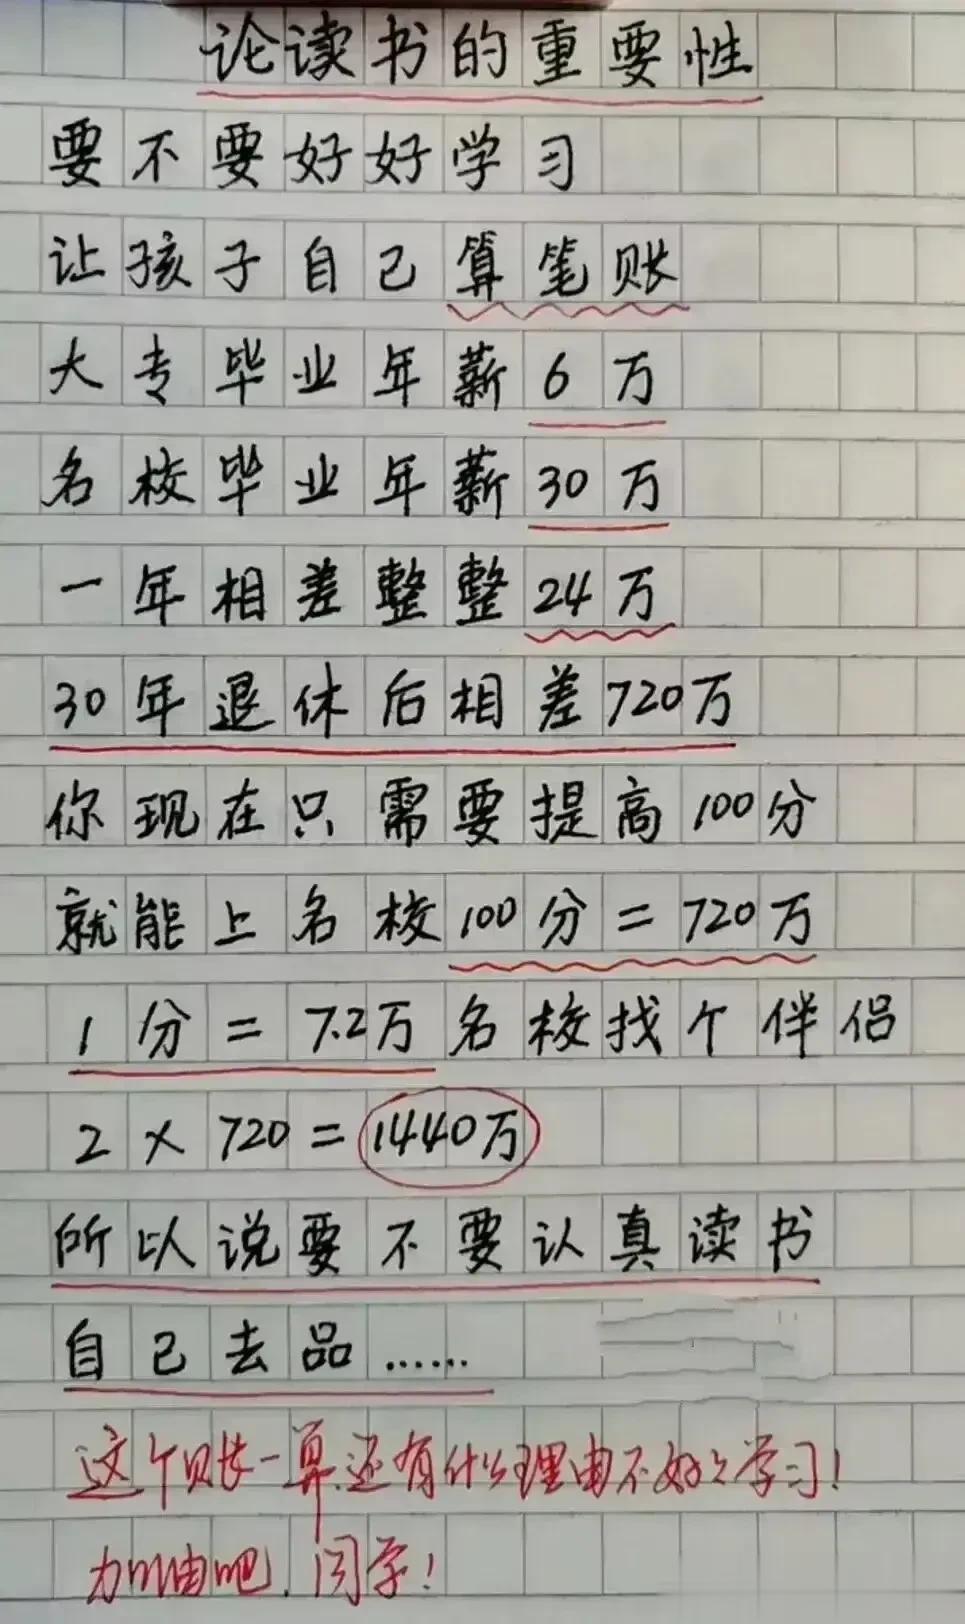 论读书的重要性
要不要好好学习
让孩子自己算笔账
大专毕业年薪6万
名校毕业年薪30万
一年相差整整24万
30年退休后相差720万
你现在只需要提高100分
就能上名校100分=720万
1分=7.2万名校找个伴侣
2×720=1440万
所以说要不要认真读书
自己去品……
这个账一算.还有什么理由不好好学习!
加油吧.同学!